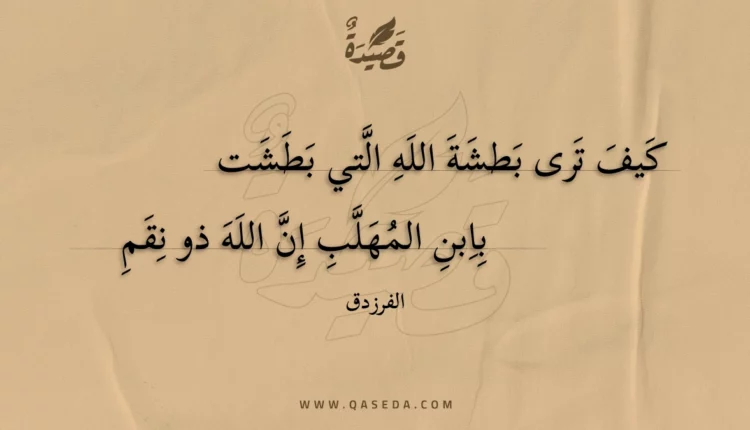 قَصِيْدَةٌ
كَيفَ تَرى بَطشَةَ اللَهِ الَّتي بَطَشَت
بِاِبنِ المُهَلَّبِ إِنَّ اللَهَ ذو نِقَمِ
الفرزدق
WWW.QASEDA.COM